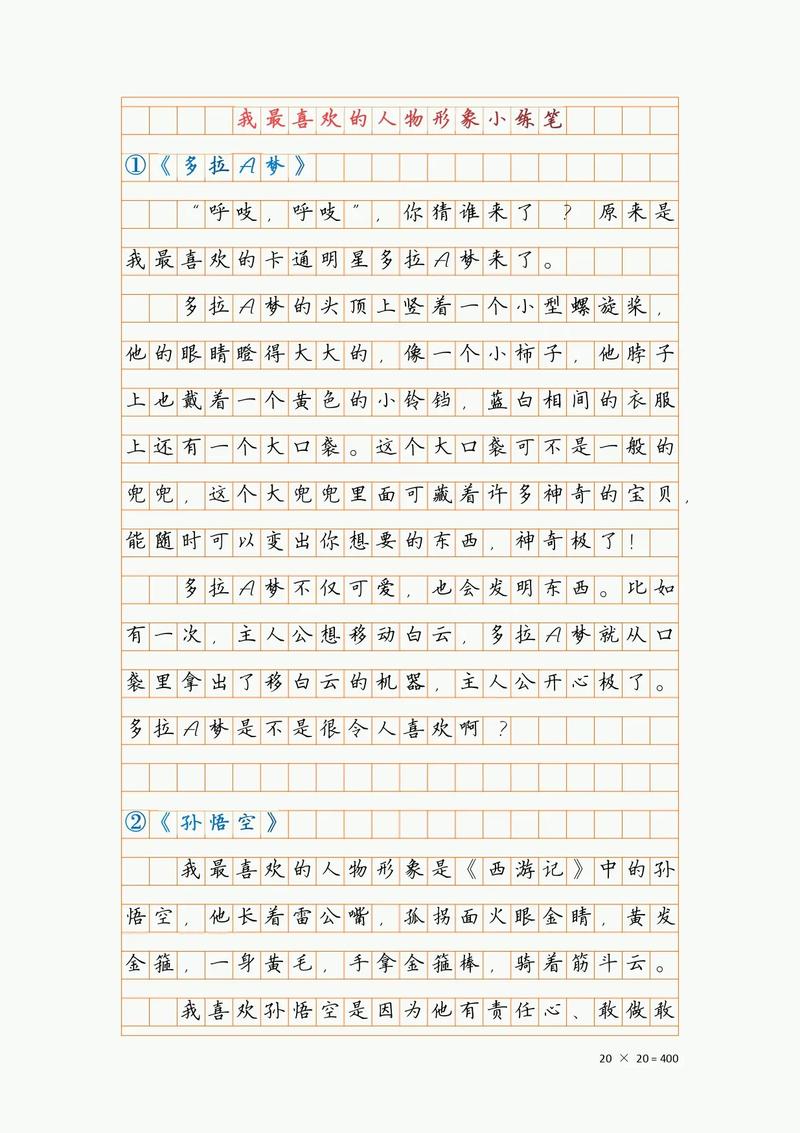 我最喜欢的人物形象小练笔
①《多拉A梦》
“呼吱,呼吱”,你猜谁来了?原来是
我最喜欢的卡通明星多拉A梦来了。
多拉A梦的头顶上竖着一个小型螺旋桨,
他的眼睛瞪得大大的,像一个小柿子,他脖子
上也戴着一个黄色的小铃铛,蓝白相间的衣服
上还有一个大口袋。这个大口袋可不是一般的
兜兜,这个大兜兜里面可藏着许多神奇的宝贝,
能随时可以变出你想要的东西,神奇极了!
多拉A梦不仅可爱,也会发明东西。比如
有一次,主人公想移动白云,多拉A梦就从口
袋里拿出了移白云的机器,主人公开心极了。
多拉A梦是不是很令人喜欢啊?
②《孙悟空》
我最喜欢的人物形象是《西游记》中的孙
悟空,他长着雷公嘴,孤拐面火眼金睛,黄发
金箍,一身黄毛,手拿金箍棒,骑着筋斗云。
我喜欢孙悟空是因为他有责任心、敢做敢
20 × 20 = 400